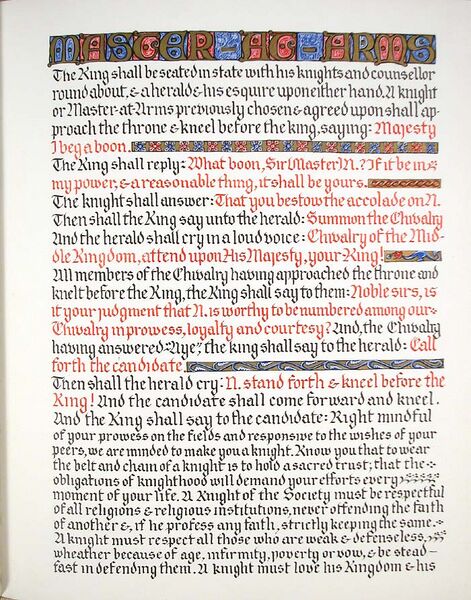 MASTER-AT-ARMS
The King shall be seated in state with his knights and counsellor
round about, & a herald & his esquire upon either hand. A knight
or Master-at-Arms previously chosen & agreed upon shall ap-
proach the throne & kneel before the king, saying: Majesty
I beg a boon.
The King shall reply: What boon, Sir (Master) N.? If it be in
my power, & a reasonable thing, it shall be yours.
The knight shall answer: That you bestow the accolade on N.
Then shall the King say unto the herald: Summon the Chivalry
And the herald shall cry in a loud voice: Chivalry of the Mid-
dle Kingdom, attend upon His Majesty, your King!
All members of the Chivalry having approached the throne and
knelt before the King, the King shall say to them: Noble sirs, is
it your judgment that N. is worthy to be numbered among our
Chivalry in prowess, loyalty and courtesy? And, the Chivalry
having answered "Aye", the king shall say to the herald: Call
forth the candidate.
Then shall the herald cry: N. stand forth & kneel before the
King! And the candidate shall come forward and kneel.
And the King shall say to the candidate: Right mindful
of your prowess on the fields and responsive to the wishes of your
peers, we are minded to make you a knight. Know you that to wear
the belt and chain of a knight is to hold a sacred trust; that the
obligations of knighthood will demand your efforts every
moment of your life. A Knight of the Society must be respectful
of all religions & religious institutions, never offending the faith
of another &, if he profess any faith, strictly keeping the same.
A knight must respect all those who are weak & defenseless,
wheather because of age, infirmity, poverty or vow, & be stead-
fast in defending them. A knight must love his Kingdom & his